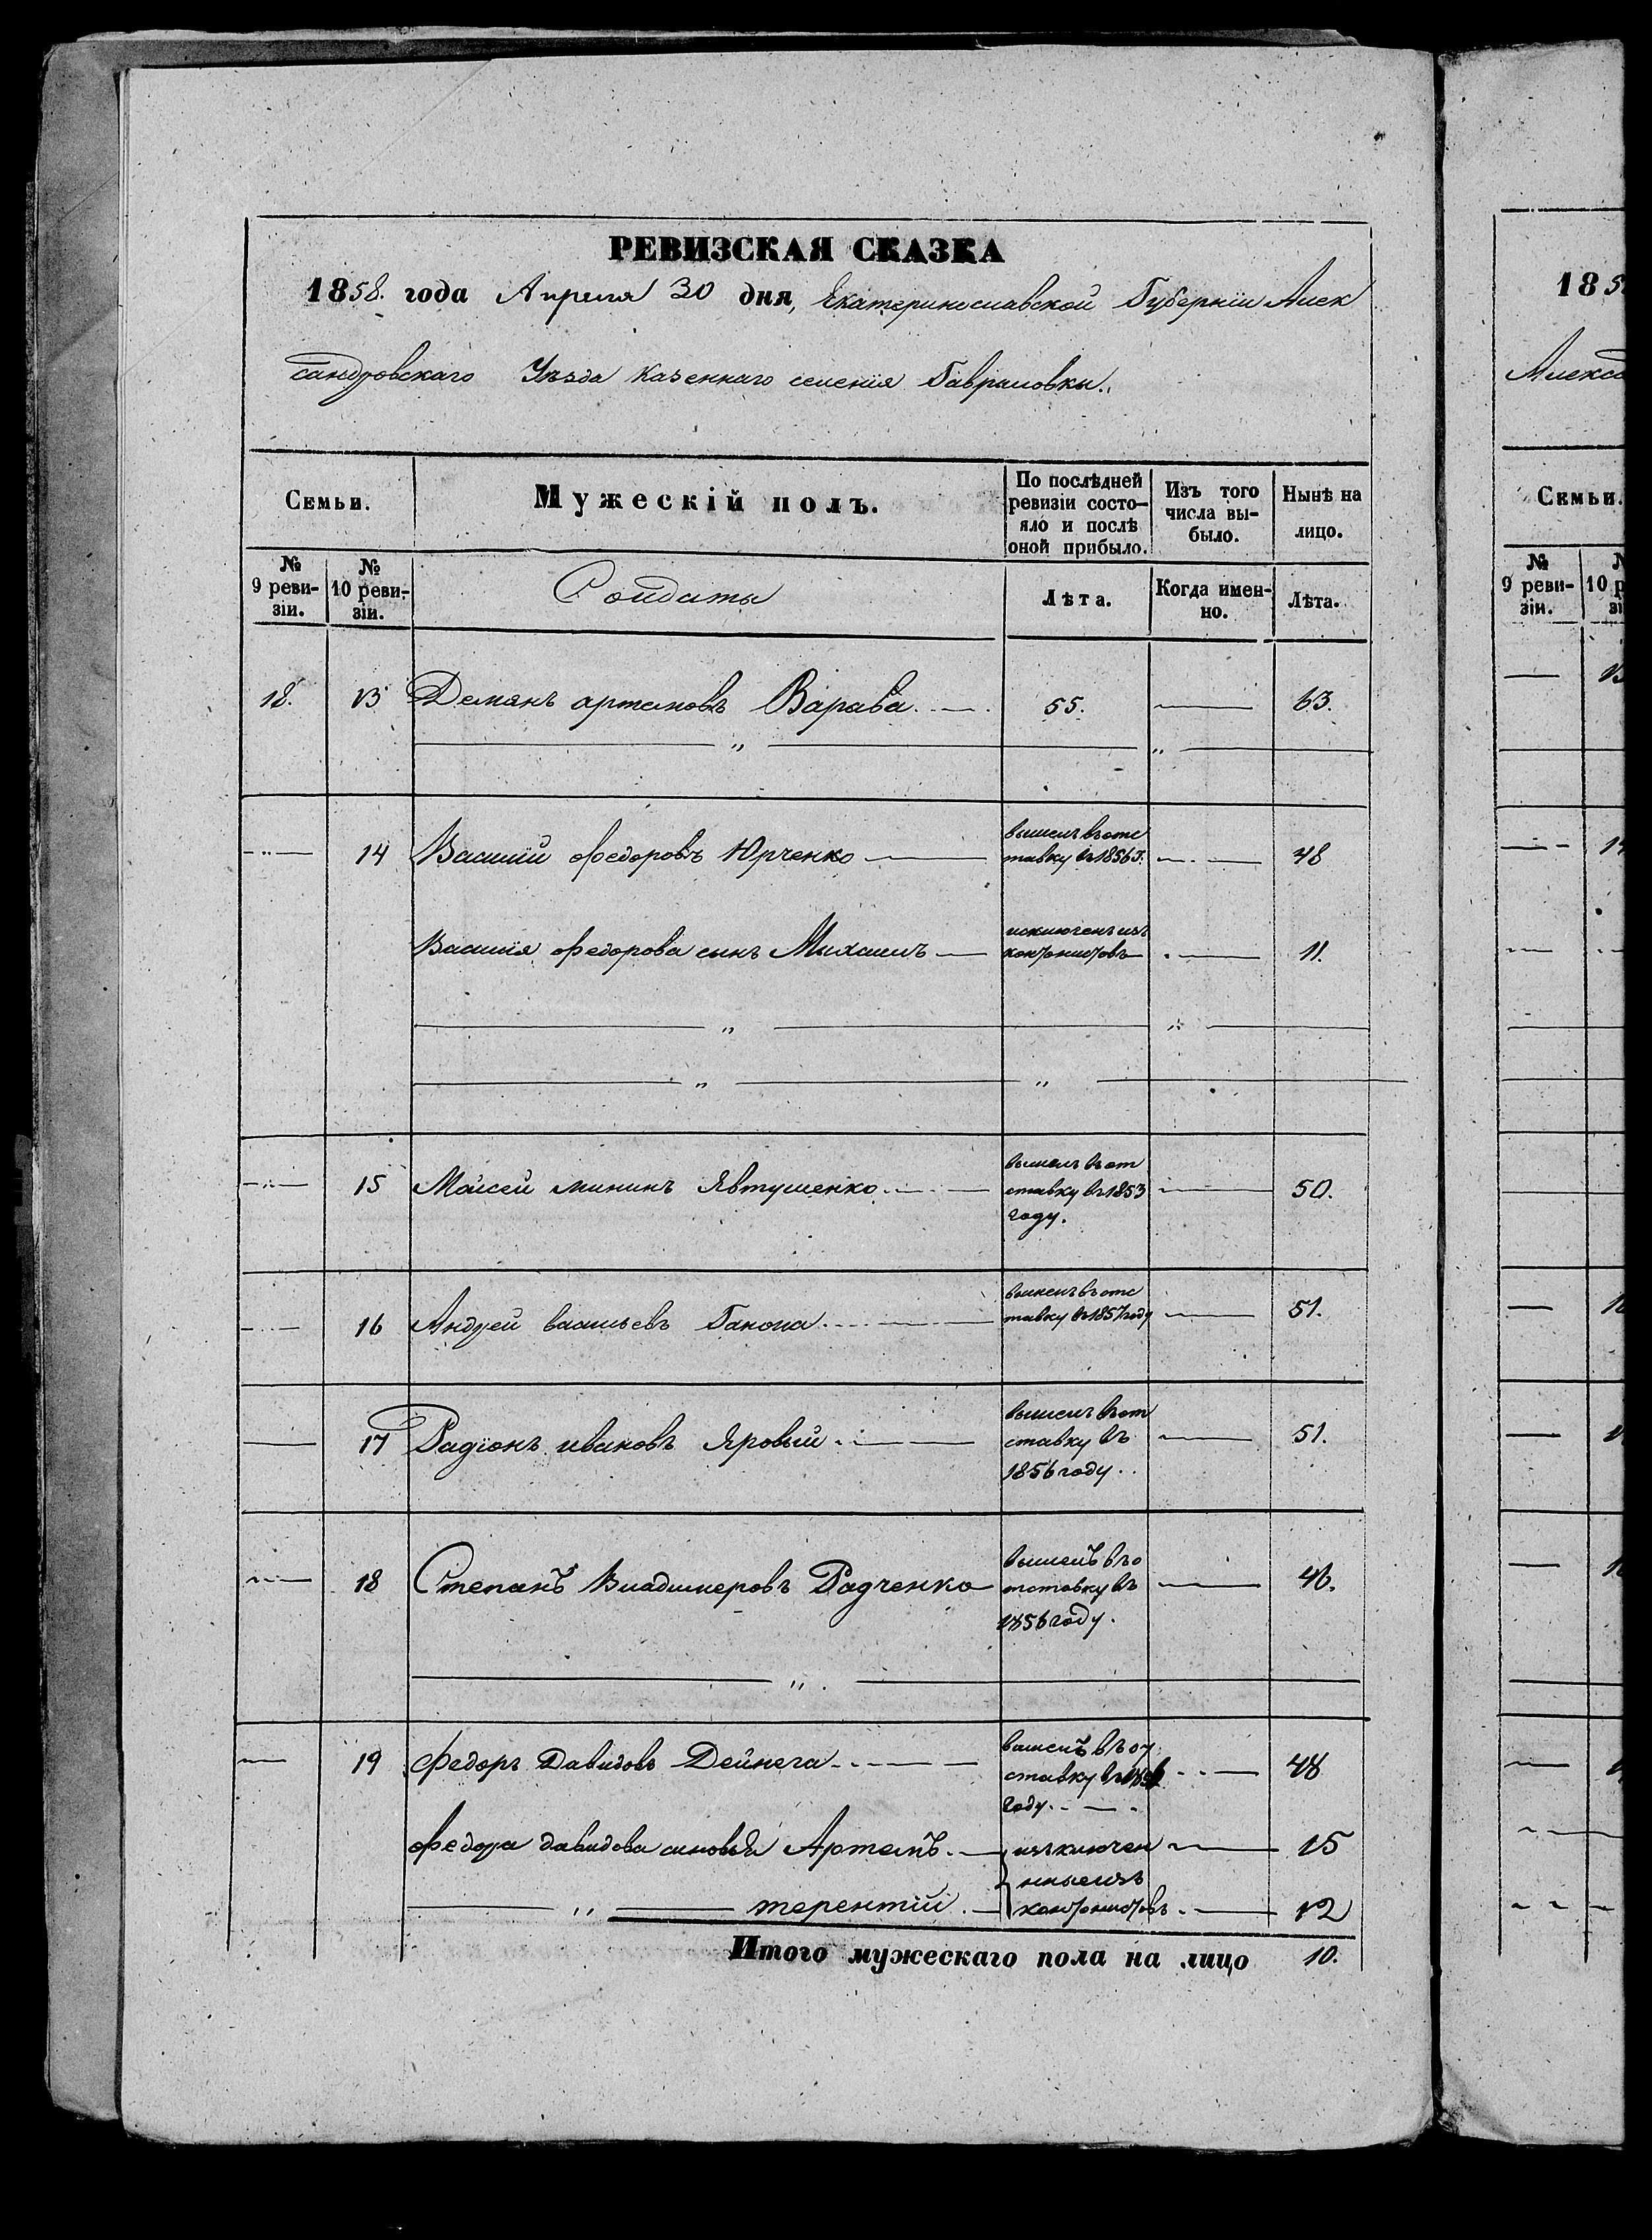 РЕВИЗСКАЯ СКАЗКА
1858. года Апреля 30 дня, Екатеринославской Губерніи Алек
сандровскаго Уѣзда казеннаго селенія Гавриловки.
Семьи.
Мужескій полъ.
По послѣдней ревизіи состояло и послѣ оной прибыло.
Изъ того числа выбыло.
Нынѣ на лицо.
№ 9 ревизіи.
№ 10 ревизіи.
Солдаты
Лѣта.
Когда именно.
Лѣта.
18. 13 Демянъ артемовъ Варава 55. 63.
14 Василій федоровъ Юрченко вышелъ въ отс
тавку въ 1856 г. 48
Василія федорова сынъ Михаилъ исключенъ изъ
кантонистовъ 11.
15 Моисей мининъ Явтушенко вышелъ въ от
ставку въ 1853 50.
году.
16 Андрей васильевъ Ганопа вышелъ въ отс
тавку въ 1857 году 51.
17 Радіонъ ивановъ Яровый вышелъ въ от
ставку въ 51.
1856 году.
18 Степанъ Владимеровъ Радченко вышелъ въ о
тставку въ 46.
1856 году.
19 федоръ Давидовъ Дейнега вышелъ въ от
ставку въ 48
году.
федора давидова сыновья Артемъ изключен 15
ные изъ
" терентій кантонистовъ 12
Итого мужескаго пола на лицо 10.
1858
Алекса
Семьи.
№ 9 ревизіи.